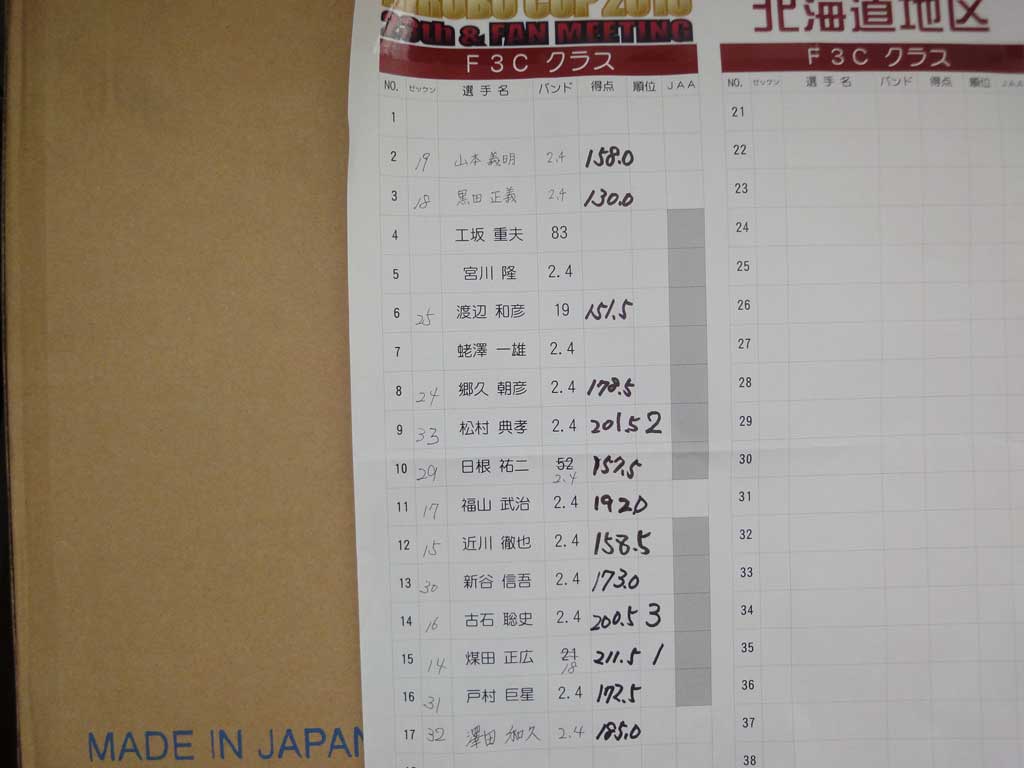 CUP 2010
23th & FAN MEETING
北海道地区
F3C クラス
F3C クラス
NO. ゼッケン 選手名 バンド 得点 順位 JAA
NO. ゼッケン 選手名 バンド 得点 順位 JAA
1
2 19 山本 義明 2.4 158.0
3 18 黒田 正義 2.4 130.0
4 工坂 重夫 83
5 宮川 隆 2.4
6 25 渡辺 和彦 19 151.5
7 蛯澤 一雄 2.4
8 24 郷久 朝彦 2.4 178.5
9 33 松村 典孝 2.4 201.5 2
10 29 日根 祐二 52 2.4 157.5
11 17 福山 武治 2.4 192.0
12 15 近川 徹也 2.4 158.5
13 30 新谷 信吾 2.4 173.0
14 16 古石 聡史 2.4 200.5 3
15 14 煤田 正広 21 18 211.5 1
16 31 戸村 巨星 2.4 172.5
17 32 澤田 和久 2.4 185.0
21
22
23
24
25
26
27
28
29
30
31
32
33
34
35
36
37
38
MADE IN JAPAN